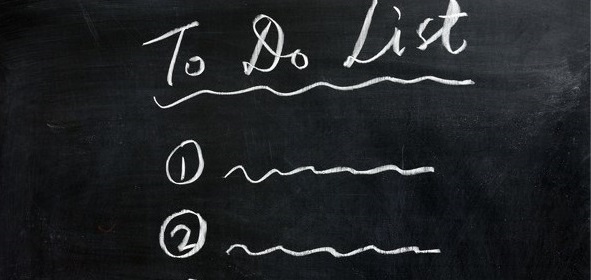 To Do List
1
2